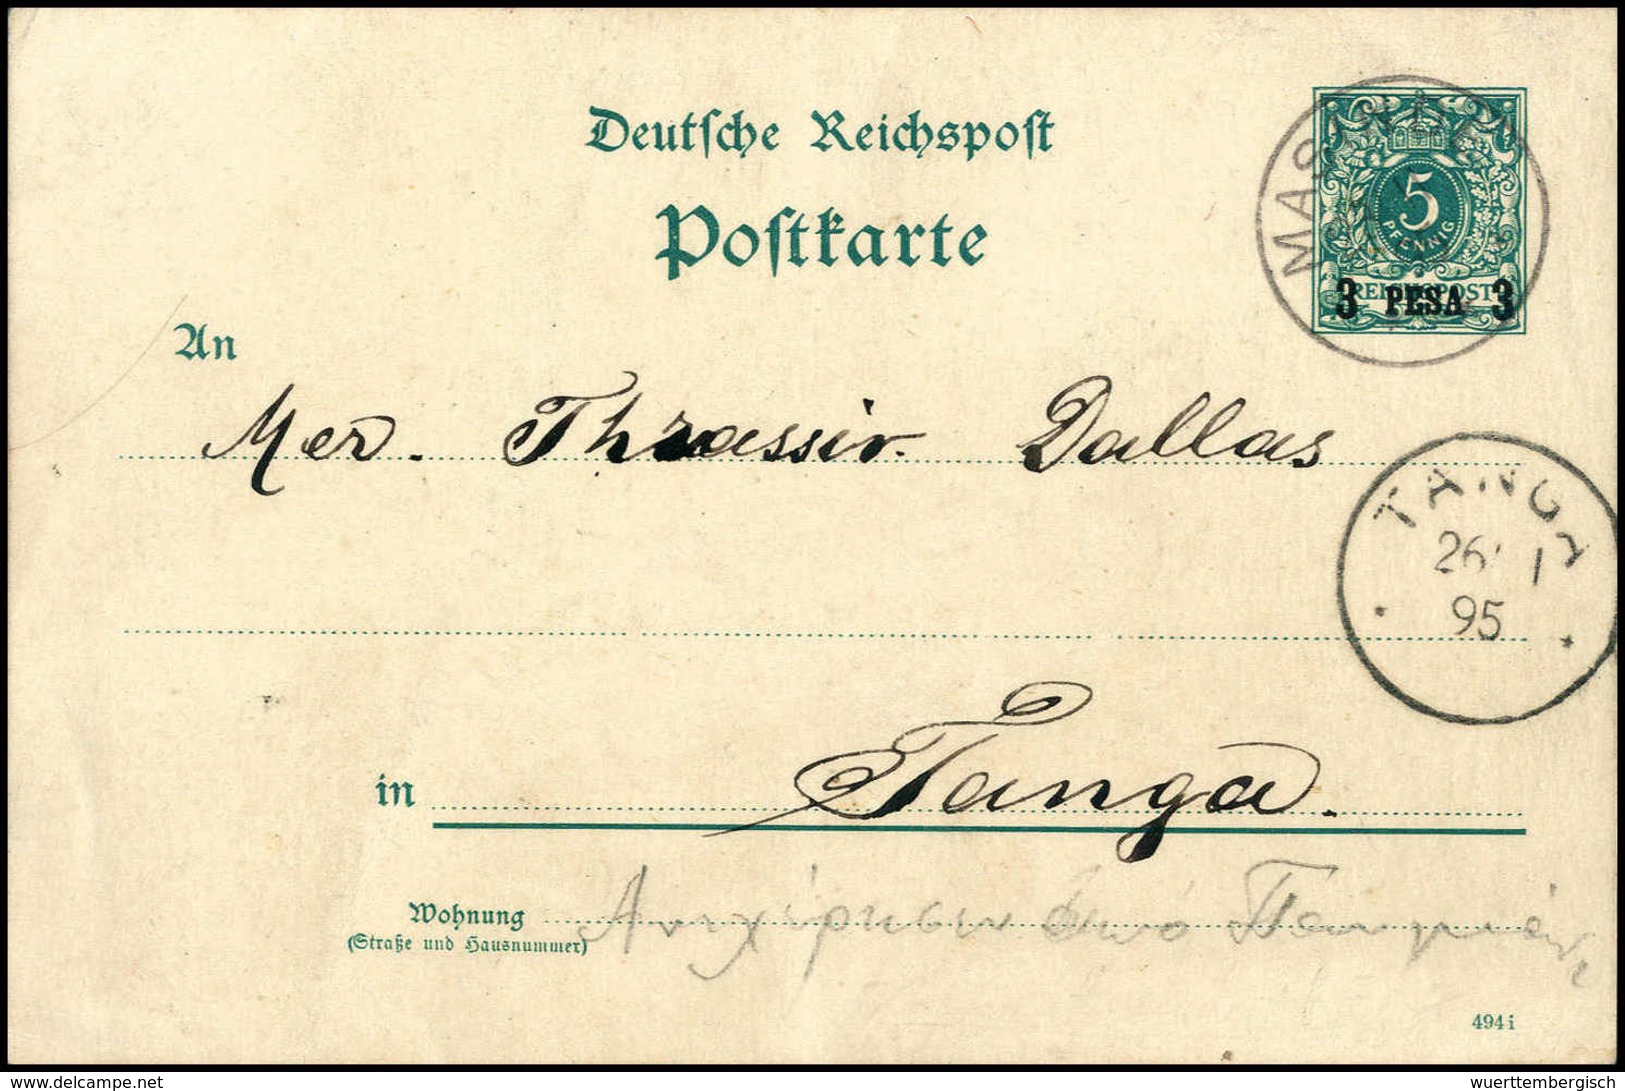 Deutsche Reichspost
Postkarte
5
PFENNIG
REICHSPOST
3 PESA 3
MASINDE
An
Mer. Thrassiv. Dallas
TANGA
26/1
95
in Tanga.
Wohnung
(Straße und Hausnummer)
ἀπὸ
494i
delcampe.net
wuerttembergisch